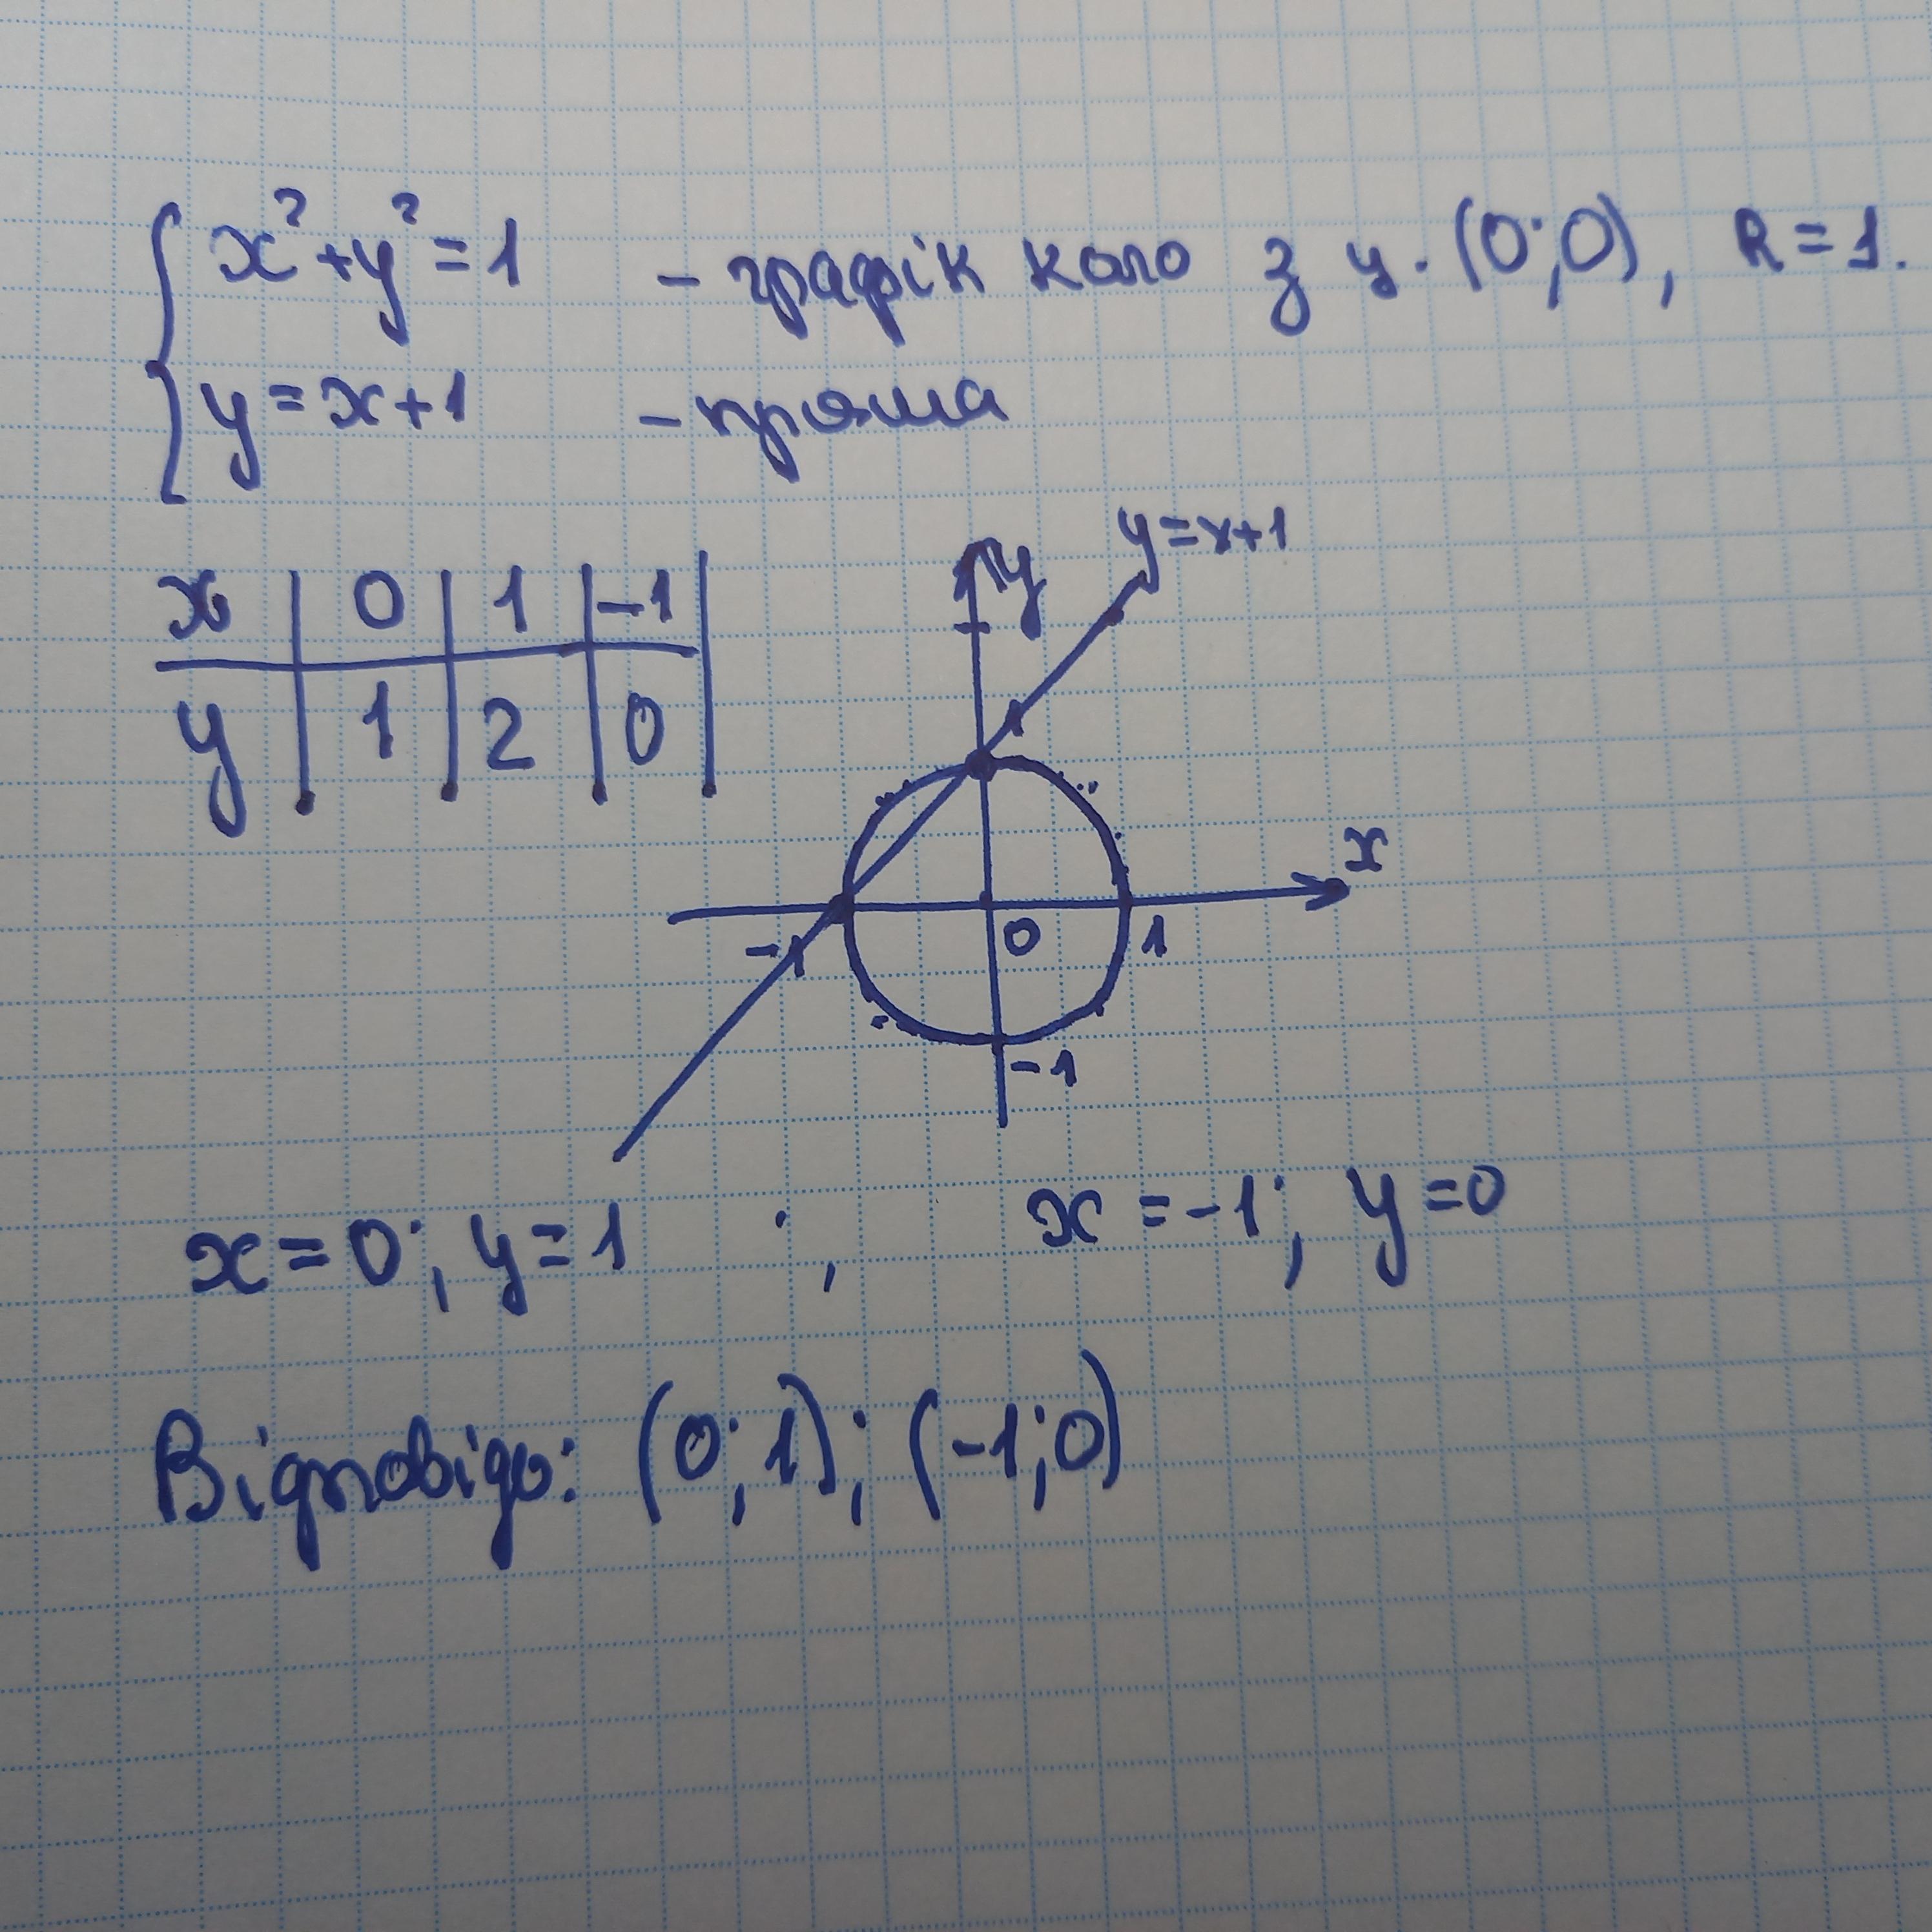 x²+y²=1 - графік коло з ц. (0;0), R=1.
y=x+1 - пряма
x | 0 | 1 | -1
y | 1 | 2 | 0
y
y=x+1
1
x
-1
0
1
-1
x=0; y=1 ; x=-1; y=0
Відповідь: (0;1); (-1;0)